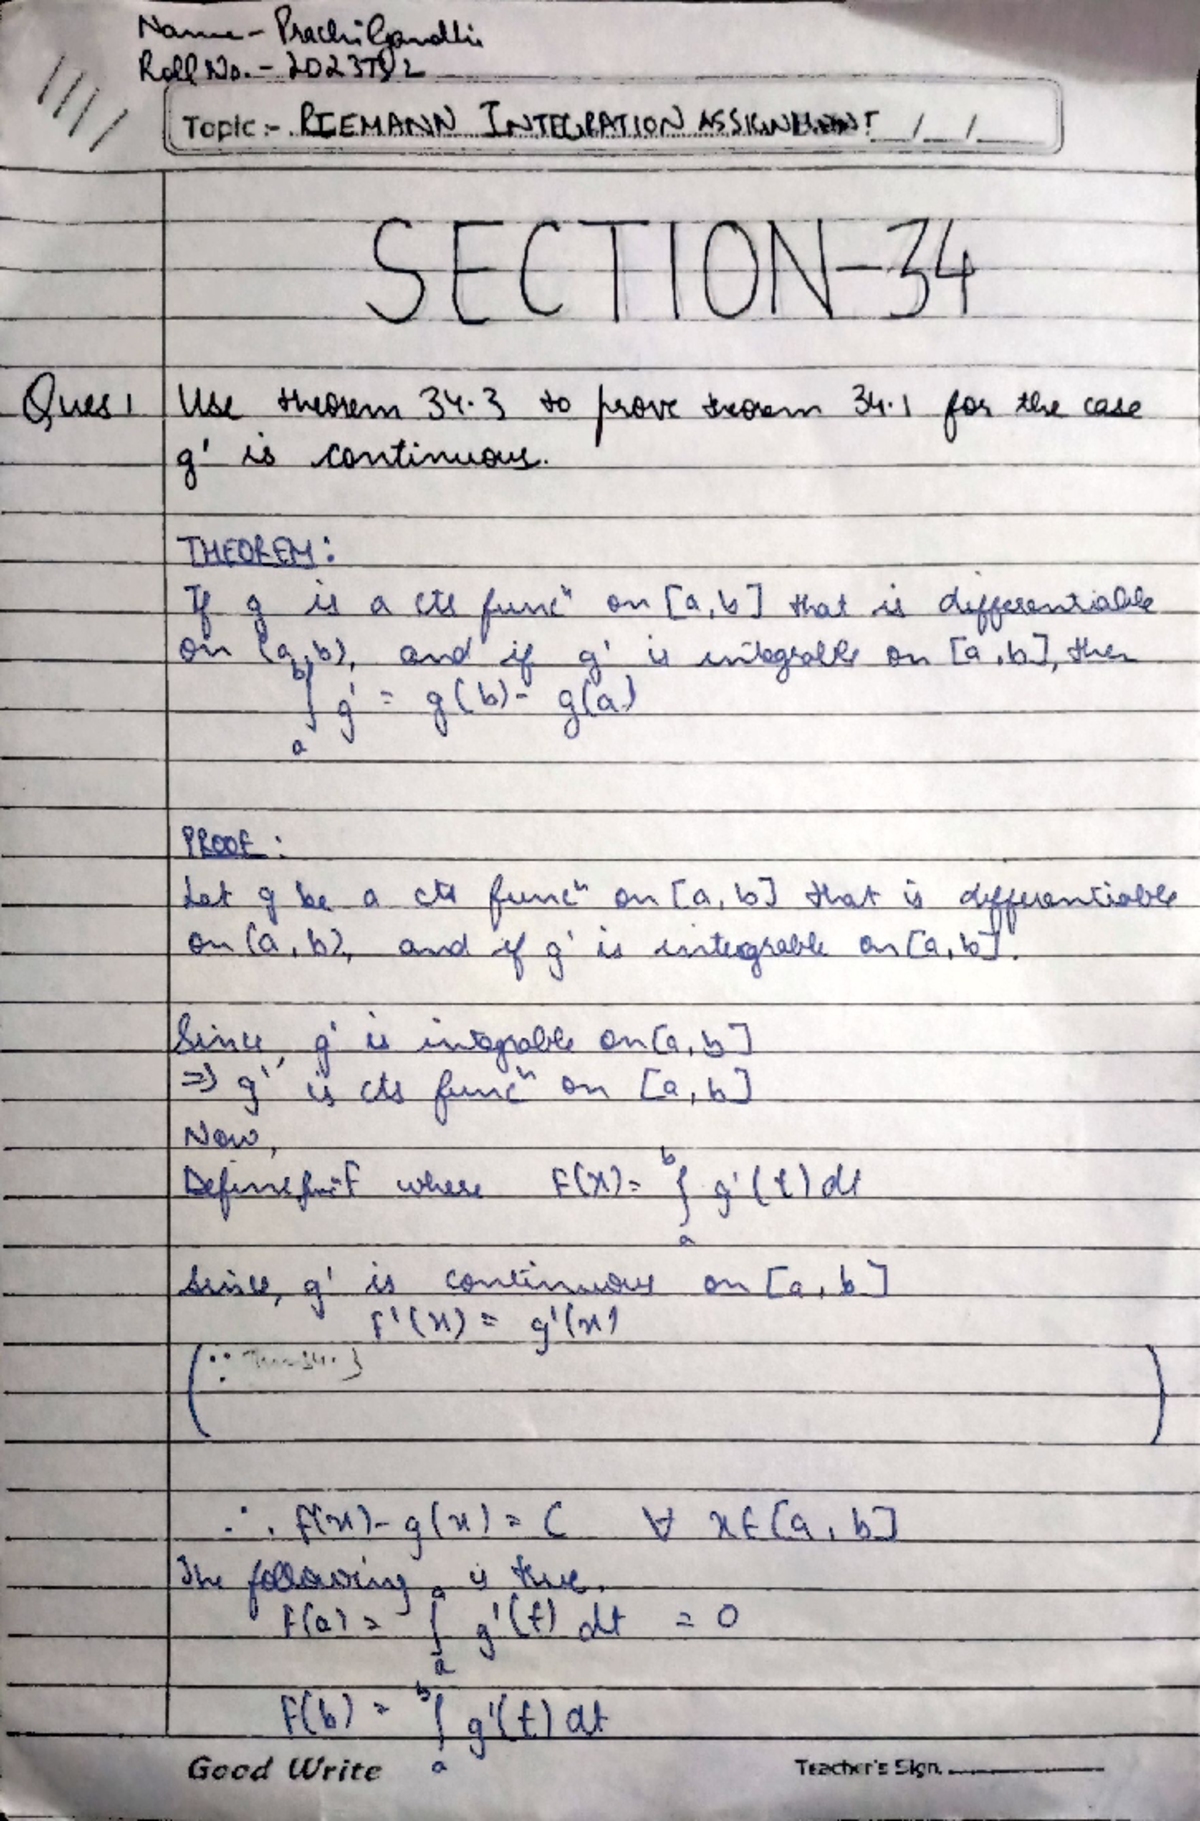 Name - Prachi Gandhi
Roll No. - 2023
Topic :- RIEMANN INTEGRATION ASSIGNMENT / /
SECTION-34
Ques 1 Use theorem 34.3 to prove theorem 34.1 for the case
g' is continuous.
THEOREM:
If g is a cts funcⁿ on [a,b] that is differentiable
on (a,b), and if g' is integrable on [a,b], then
b
∫ g' = g(b) - g(a)
a
PROOF :
Let g be a cts funcⁿ on [a,b] that is differentiable
on (a,b), and if g' is integrable on [a,b].
Since, g' is integrable on [a,b]
⇒ g' is cts funcⁿ on [a,b]
Now,
Define F where F(x) = ∫ₐᵇ g'(t) dt
Since, g' is continuous on [a,b]
F'(x) = g'(x)
(∵ 34.3 )
∴ F(x) - g(x) = C ∀ x ∈ [a,b]
The following is true.
F(a) = ∫ₐᵃ g'(t) dt = 0
F(b) = ∫ₐᵇ g'(t) dt
Good Write Teacher's Sign.